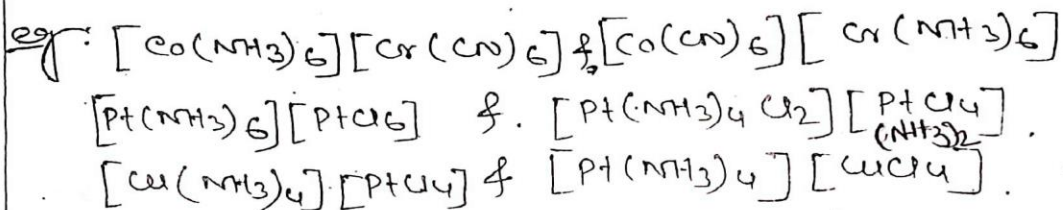 eg: [Co(NH3)6][Cr(CN)6] & [Co(CN)6][Cr(NH3)6]
[Pt(NH3)6][PtCl6] &. [Pt(NH3)4Cl2][PtCl4].
(NH3)2
[Cu(NH3)4][PtCl4] & [Pt(NH3)4][CuCl4].